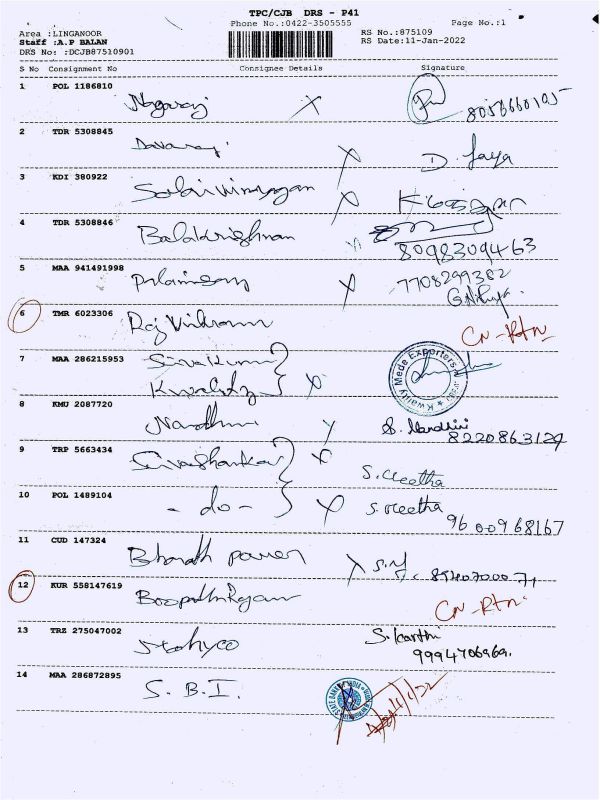 TPC/CJB DRS - P41
Phone No.:0422-3505555 Page No.:1
Area :LINGANOOR RS No.:875109
Staff :A.P BALAN RS Date:11-Jan-2022
DRS No: :DCJB87510901
S No Consignment No Consignee Details Signature
1 POL 1186810
Nagaraj X 8056660105
2 TDR 5308845
X D. Jaya
3 KDI 380922
X
4 TDR 5308846
Balakrishnan 8098309463
5 MAA 941491998
X 7708299382
G.Nithya.
6 TMR 6023306
Raj Vikram CN-Rtn
7 MAA 286215953
Sivakumar
Kwality X Kwality Mede Exporters
8 KMU 2087720
Nandhini S. Nandhini
8220863129
9 TRP 5663434
Sivashankar X S. Geetha
10 POL 1489104
- do - X S. Geetha
9600968167
11 CUD 147324
Bharath power X
12 KUR 558147619
CN-Rtn.
13 TRZ 275047002
S. Karthi
9994706969.
14 MAA 286872895
S.B.I.